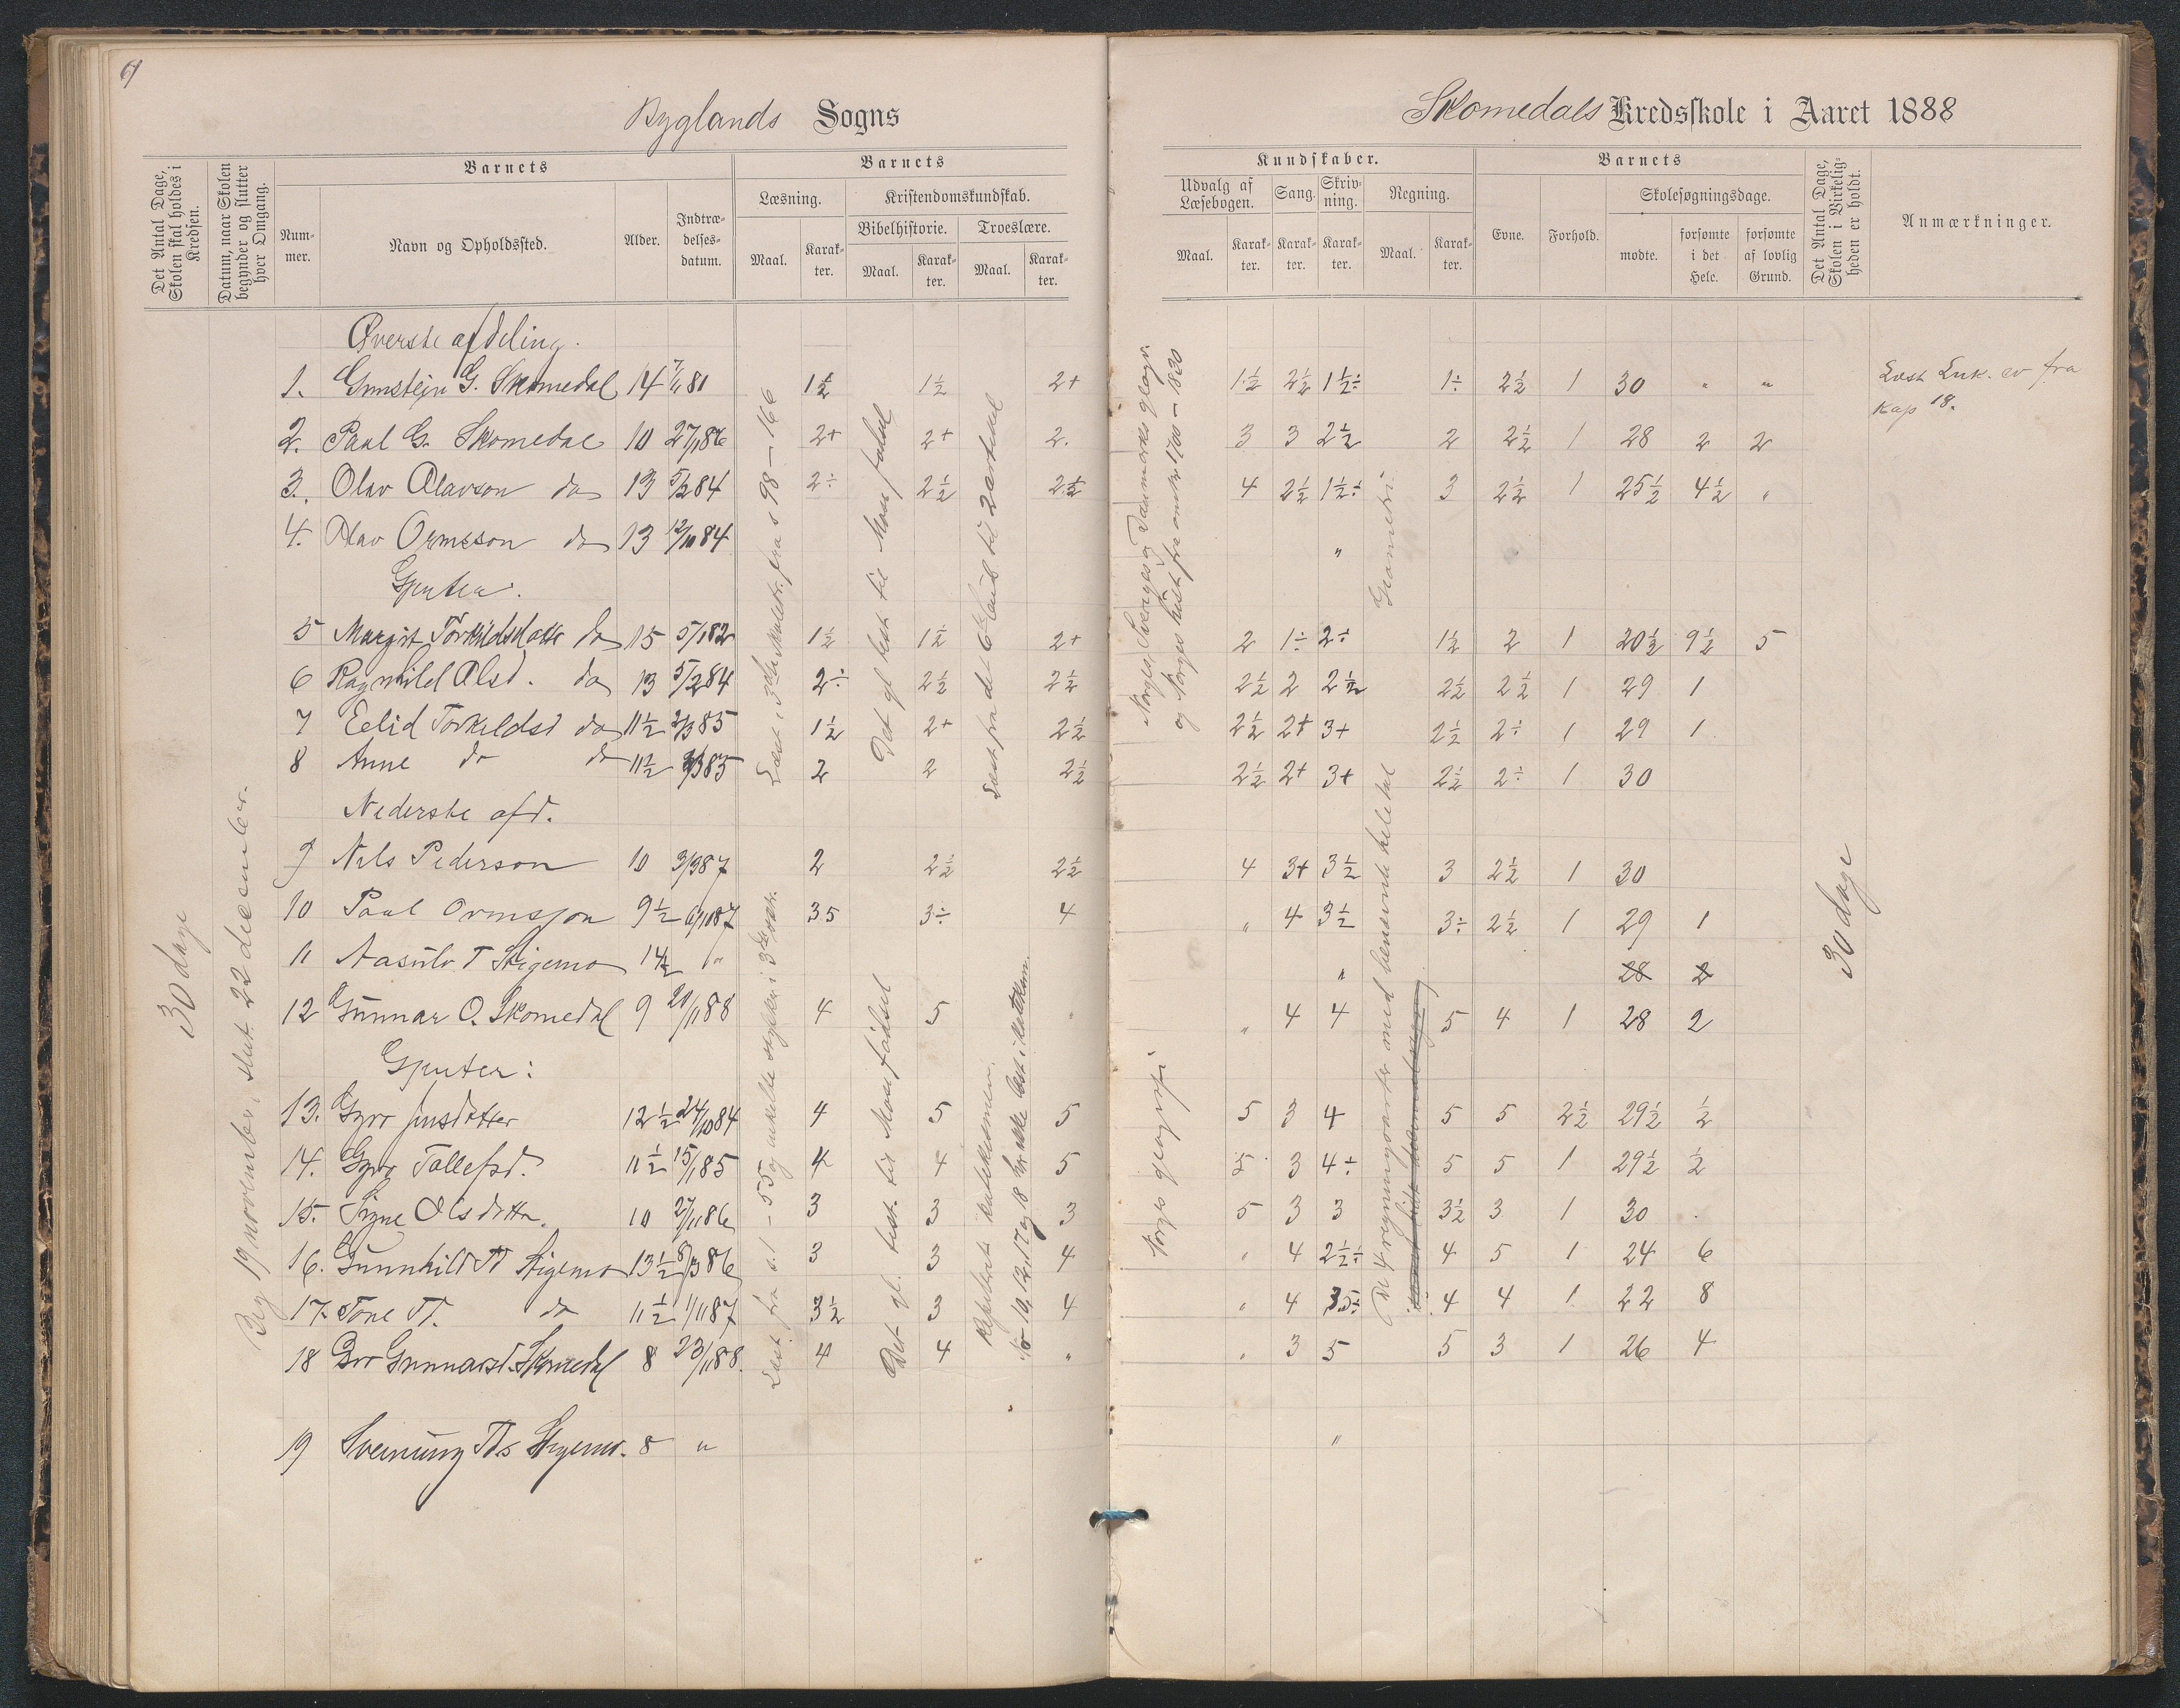 Byglands Sogns
Skomedals Kredsskole i Aaret 1888
Det Antal Dage, Skolen skal holdes i Kredsen.
Datum, naar Skolen begynder og slutter hver Omgang.
Barnets
Nummer.
Navn og Opholdssted.
Alder.
Indtrædelsesdatum.
Barnets
Læsning.
Maal.
Karakter.
Kristendomskundskab.
Bibelhistorie.
Maal.
Karakter.
Troeslære.
Maal.
Karakter.
Kundskaber.
Udvalg af Læsebogen.
Maal.
Karakter.
Sang.
Karakter.
Skrivning.
Karakter.
Regning.
Maal.
Karakter.
Barnets
Evne.
Forhold.
Skolesøgningsdage.
mødte.
forsømte i det Hele.
forsømte af lovlig Grund.
Det Antal Dage, Skolen i Virkeligheden er holdt.
Anmærkninger.
30 dage
Beg 19 november, slut. 22 december.
Øverste afdeling.
1. Gunstein G. Skomedal 14 7/11 81 1½ 1½ 2+ 1½ 2½ 1½÷ 1÷ 2½ 1 30 " "
2. Paal G. Skomedal 10 27/1 86 2+ 2+ 2. 3 3 2½ 2 2½ 1 28 2 2
3. Olav Olavson do 13 5/2 84 2÷ 2½ 2½ 4 2½ 1½÷ 3 2½ 1 25½ 4½ "
4. Olav Ormsson do 13 12/10 84 "
Gjenter.
5 Margit Torkildsdatter do 15 5/1 82 1½ 1½ 2+ 2 1÷ 2÷ 1½ 2 1 20½ 9½ 5
6 Ragnhild Olsd. do 13 5/2 84 2÷ 2½ 2½ 2½ 2 2½ 2½ 2½ 1 29 1
7 Eelid Torkildsd do 11½ 2/3 85 1½ 2+ 2½ 2½ 2+ 3+ 2½ 2÷ 1 29 1
8 Anne do do 11½ 2/3 85 2 2 2½ 2½ 2+ 3+ 2½ 2÷ 1 30
Nederste afd.
9 Nils Pederson 10 3/9 87 2 2½ 2½ 4 3+ 3½ 3 2½ 1 30
10 Paal Ormsson 9½ 6/11 87 35 3÷ 4 " 4 3½ 3÷ 2½ 1 29 1
11 Aasulv T Stigemo 14½ " " 28 2
12 Gunnar O. Skomedal 9 20/11 88 4 5 " " 4 4 5 4 1 28 2
Gjenter:
13. Gyro Jensdatter 12½ 24/10 84 4 5 5 5 3 4 5 5 2½ 29½ ½
14. Gyro Tallefsd. 11½ 15/1 85 4 4 5 5 3 4÷ 5 5 1 29½ ½
15. Signe Olsdatter. 10 27/11 86 3 3 3 5 3 3 3½ 3 1 30
16. Gunnhild Td Stigemo 13½ 8/3 86 3 3 4 " 4 2½÷ 4 5 1 24 6
17. Tone Td. do 11½ 1/11 87 3½ 3 4 " 4 3.5÷ 4 4 1 22 8
18 Gunnarsd. Skomedal 8 23/11 88. 4 4 " " 3 5 5 3 1 26 4
19 Sveinung Ts Stigemo. 8 " "
Læst i 3die skoletr. fra s 98–166
Det gl. test. til Mose fødsel
Læst fra det 6te bud til 2 artikel
Norges, Sveriges og Danmarks geogr.
og Norges hist fra omtr 1700–1830
Geometri.
Læst fra s. 1–55 og enkelte stykker i 3die
Det gl. test. til Mose fødsel
Repeteret i katekismen.
No 10, 12, 17 og 18 har ikke læst i katekism.
Norges geografi
De 4 regningsarter med benævnte hele tal
30 dage
Læst Luk. ev fra
Kap 18.